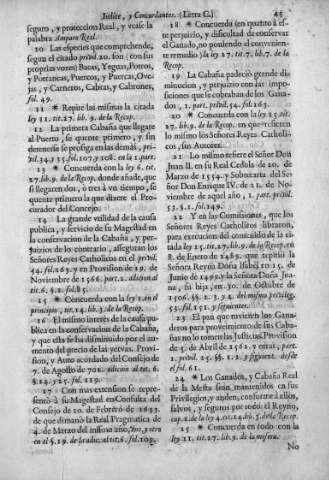 Indice, y Concordantes. (Letra G.) 45
seguro, y proteccion Real, y vease la
palabra Amparo Real.
10 Las especies que comprehende,
segun el citado privil. 20. son (con sus
proprias vozes) Bacas, Yeguas, Potros,
y Potrancas, Puercos, y Puercas, Ove-
jas, y Carneros, Cabras, y Cabrones,
fol. 49.
11 * Repite las mismas la citada
ley 11. tit. 27. lib. 9. de la Recop.
12 La primera Cabaña que llegare
al Puerto, se quente primero, y sin
detenerse se prosiga en las demás, pri-
vil. 34. y 35. fol. 107. y 108. en la 1. part.
13 * Concuerda con la ley 6. tit.
27. lib. 9. de la Recop. donde añade, que
si llegaren dos, o tres à vn tiempo, se
quente primero la que diere el Pro-
curador del Concejo.
14 La grande vtilidad de la causa
publica, y servicio de su Magestad en
la conservacion de la Cabaña, y per-
juizios de lo contrario, asseguran los
Señores Reyes Catholicos en el privil.
54. fol. 263. y en Provision de 19. de
Noviembre de 1566. part. 2. adicion al
tit. 6. §. 2. fol. 85.
15 * Concuerda con la ley 1. en el
principio, tit. 14. lib. 3. de la Recop.
16 El mismo interès de la causa pu-
blica en la conservacion de la Cabaña,
y que esta se ha disminuido por el au-
mento del precio de las yervas. Provi-
sion, y Auto acordado del Consejo de
7. de Agosto de 702. adicion al tit. 6.
§. 24. y 25. fol. 119.
17 Con mas extension se repre-
sentò à su Magestad en Consulta del
Consejo de 20. de Febrero de 1633.
de que dimanò la Real Pragmatica de
4. de Marzo del mismo año,
en el §. 19. de la adic. al tit. 6. fol. 109.
18 * Concuerda (en quanto à es-
te perjuizio, y dificultad de conservar
el Ganado, no poniendo el convenien-
te remedio) la ley 27. tit. 7. lib. 7. de la
Recop.
19 La Cabaña padeciò grande di-
minucion, y perjuizio con las impo-
siciones que se cobraban de los Gana-
dos, 1. part. privil. 54. fol. 263.
20 * Concuerda con la ley 15. tit.
27. lib. 9. de la Recop. en que refieren
lo mismo los Señores Reyes Catholi-
cos, sus Autores.
21 Lo mismo refiere el Señor Don
Juan II. en su Real Cedula de 20. de
Marzo de 1554. y Sobrecarta del Se-
ñor Don Enrique IV. de 21. de No-
viembre de aquel año, 1. part. privil.
53. §. 1. fol. 249.
22 Y en las Comissiones, que los
Señores Reyes Catholicos libraron,
para execucion del contenido de la ci-
tada ley 15. tit. 27. lib. 9. de la Recop. en
8. de Enero de 1489. que repitiò la
Señora Reyna Doña Isabèl à 15. de
Junio de 1499. y la Señora Doña Jua-
na, su hija, en 30. de Octubre de
1506. §§. 2. 3. y 4. del mismo privileg.
53. fol. 251. y siguientes.
23 El pan que avrieren los Gana-
deros para provcimiento de sus Caba-
ñas no lo tomen las Justicias, Provision
de 5. de Abril de 1562. y otras, part.
1. privil. 25. §§. 1. 2. y siguient. desde
el fol. 61.
24 * Los Ganados, y Cabaña Real
de la Mesta sean mantenidos en sus
Privilegios, y anden, conforme à ellos,
salvos, y seguros por todo el Reyno,
cap. 2. de la ley 4. tit. 14. lib. 3. de la Recop.
25 * Concuerda en todo con la
ley 11. tit. 27. lib. 9. de la mesma.
No